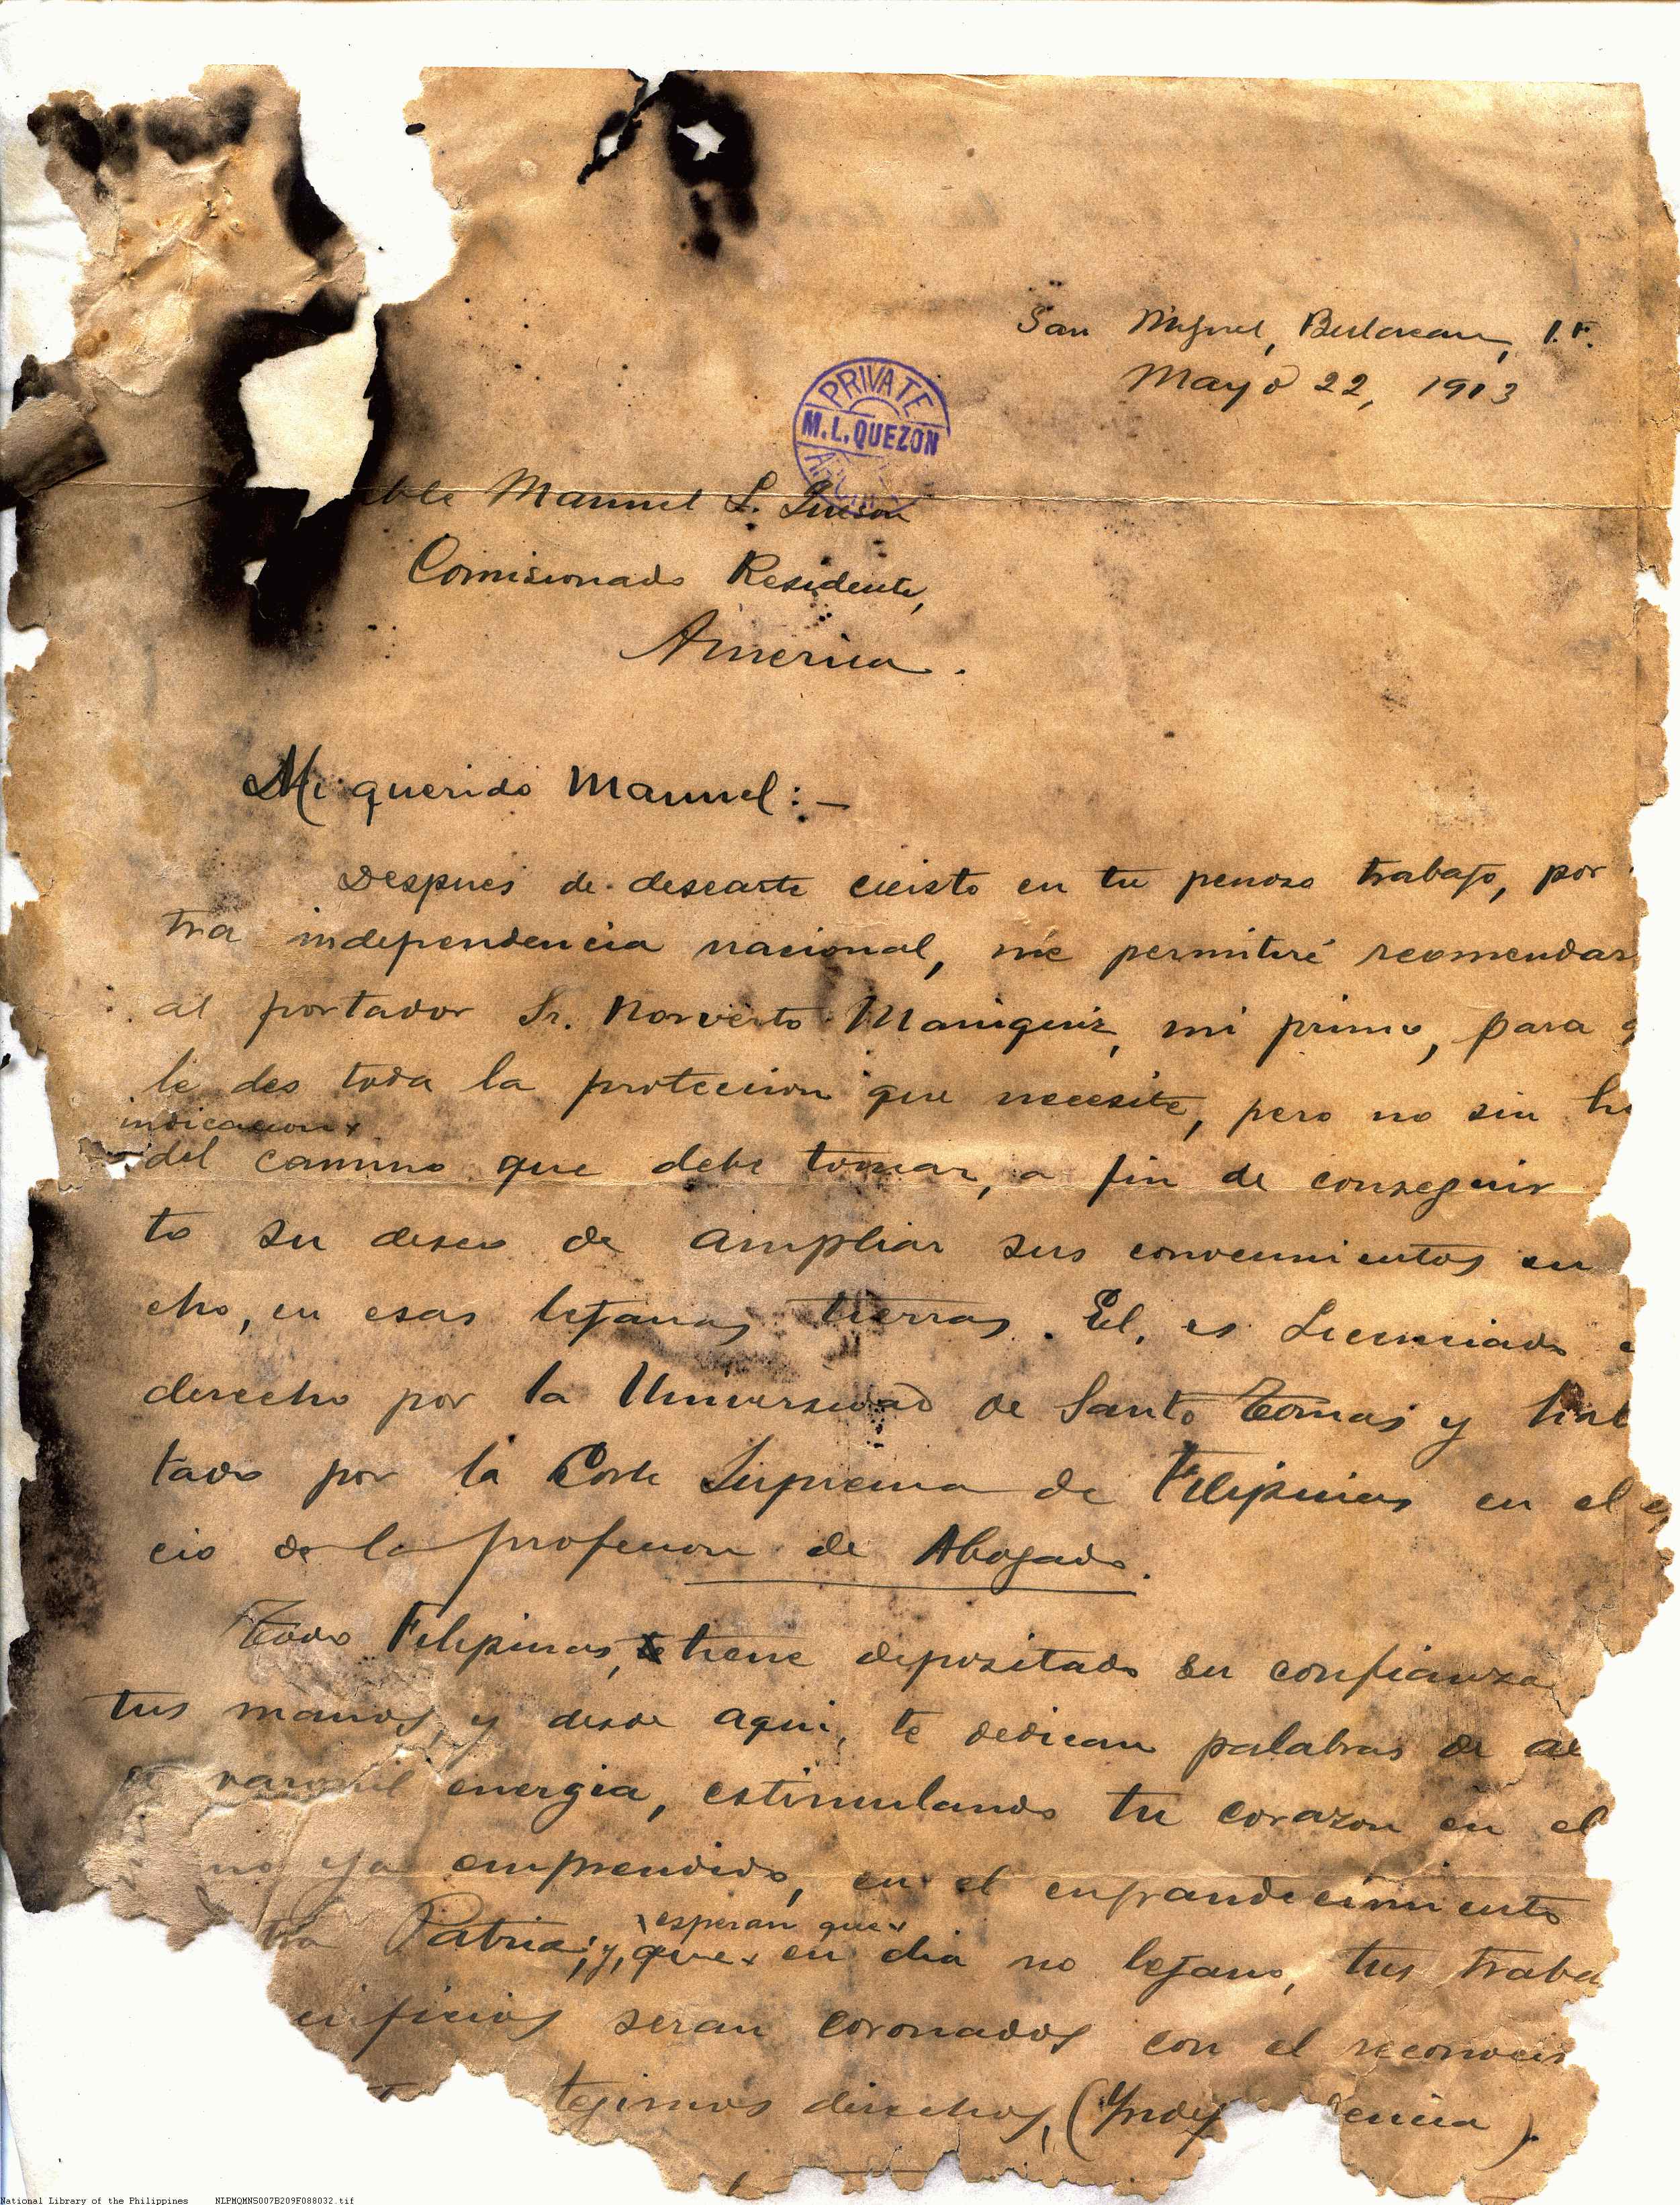 San Miguel, Bulacan, I.F.
Mayo 22, 1913
PRIVATE
M.L.QUEZON
ble Manuel L. Quezon
Comisionado Residente,
America.
Mi querido Manuel:—
Despues de desearte existo en tu penoso trabajo, por
tra independencia nacional, me permitiré recomendar
al portador Sr. Norverto Maniquiz, mi primo, para
le des toda la proteccion que necesite, pero no sin
indicacion
del camino que debe tomar, a fin de conseguir
to su deseo de ampliar sus conocimientos en
cho, en esas lejanas tierras. El, es Licenciado
derecho por la Universidad de Santo Tomas y
tado por la Corte Suprema de Filipinas en el
cio de la profesion de Abogado.
Todo Filipinas, tiene depositado su confianza
tus manos, y desde aqui, te dedican palabras de
varonil energia, estimulando tu corazon en el
no ya emprendido, en el engrandecimiento
tra Patria; y, que en dia no lejano, tus traba
esperan que
ificios seran coronados con el reconocim
tegimos derechos, (Yndep encia).
National Library of the Philippines NLPMQMNS007B209F088032.tif